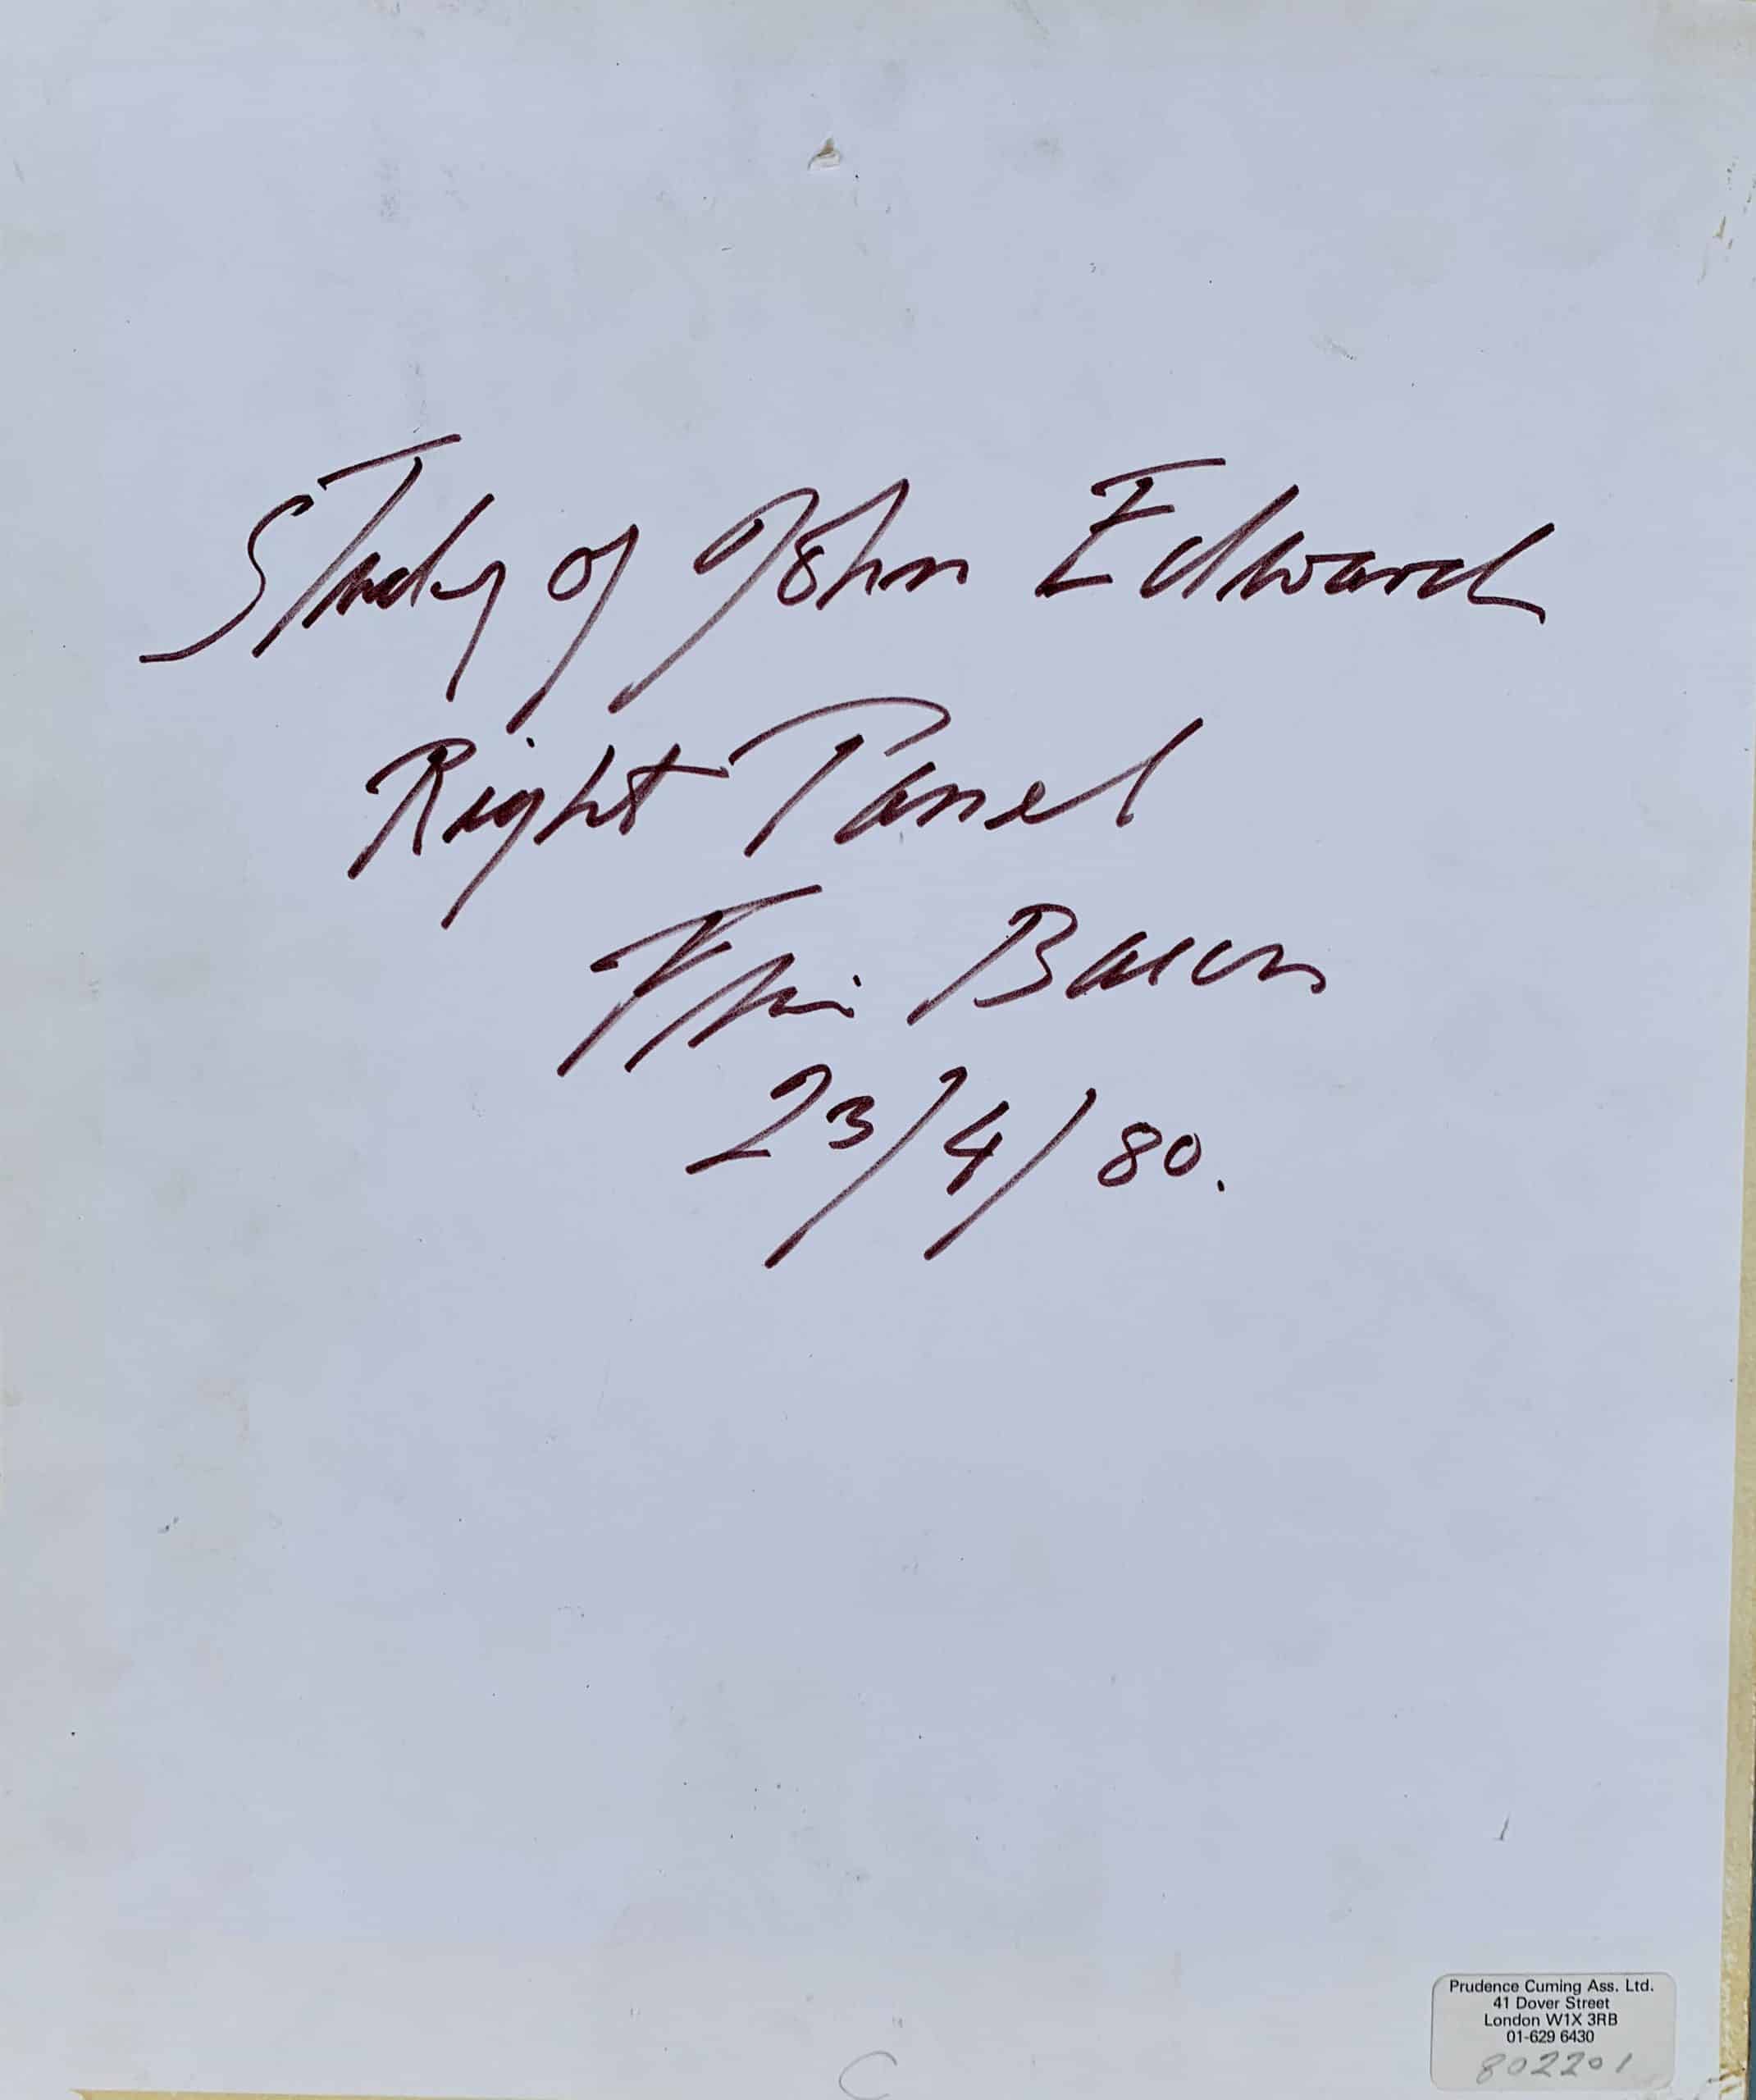 Study of John Edward
Right Panel
Francis Bacon
23/4/80.
Prudence Cuming Ass. Ltd.
41 Dover Street
London W1X 3RB
01-629 6430
802201
C